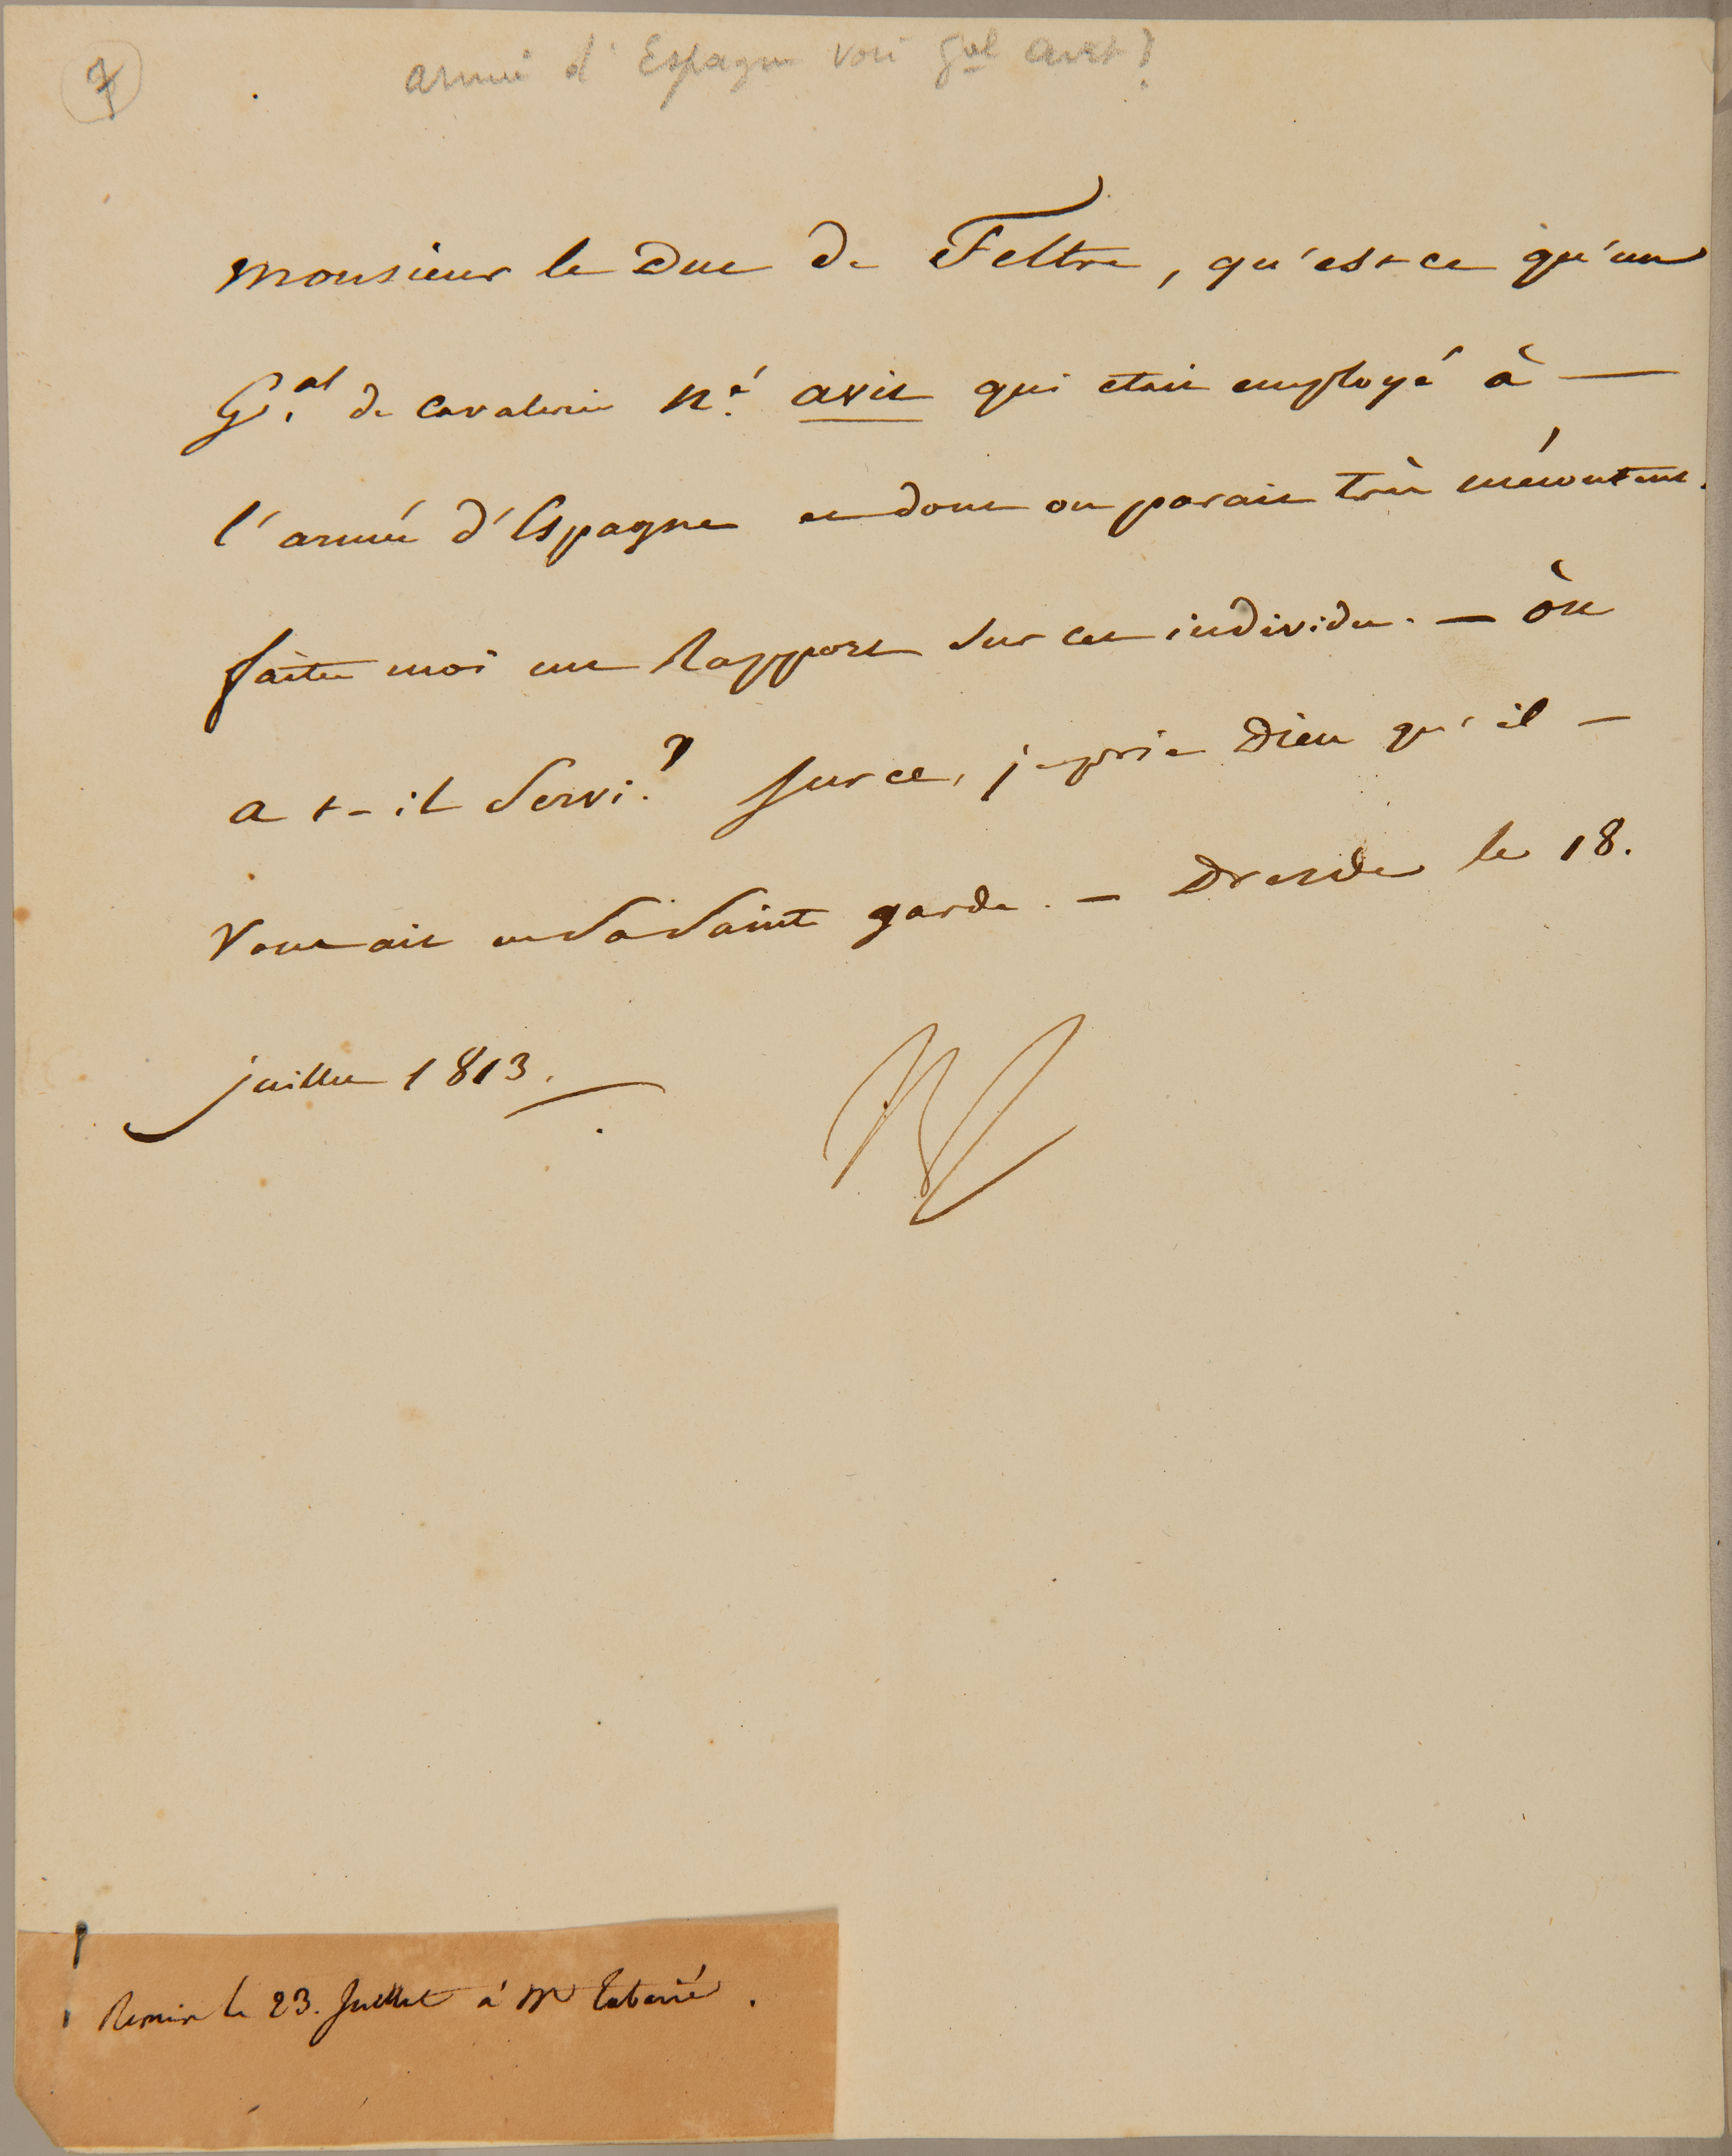 7
armée d'Espagne voir Gal avit?
Monsieur le Duc de Feltre, qu'est-ce qu'un
Gal. de cavalerie né. avit qui etait employé à —
l'armée d'Espagne et dont on parait très mécontent.
faites moi un Rapport sur cet individu. — où
a t-il servi? Sur ce, je prie Dieu qu'il —
vous ait en sa sainte garde. — Dresde le 18.
juillet 1813.
N
Remis le 23. Juillet à Mr Tabarié.